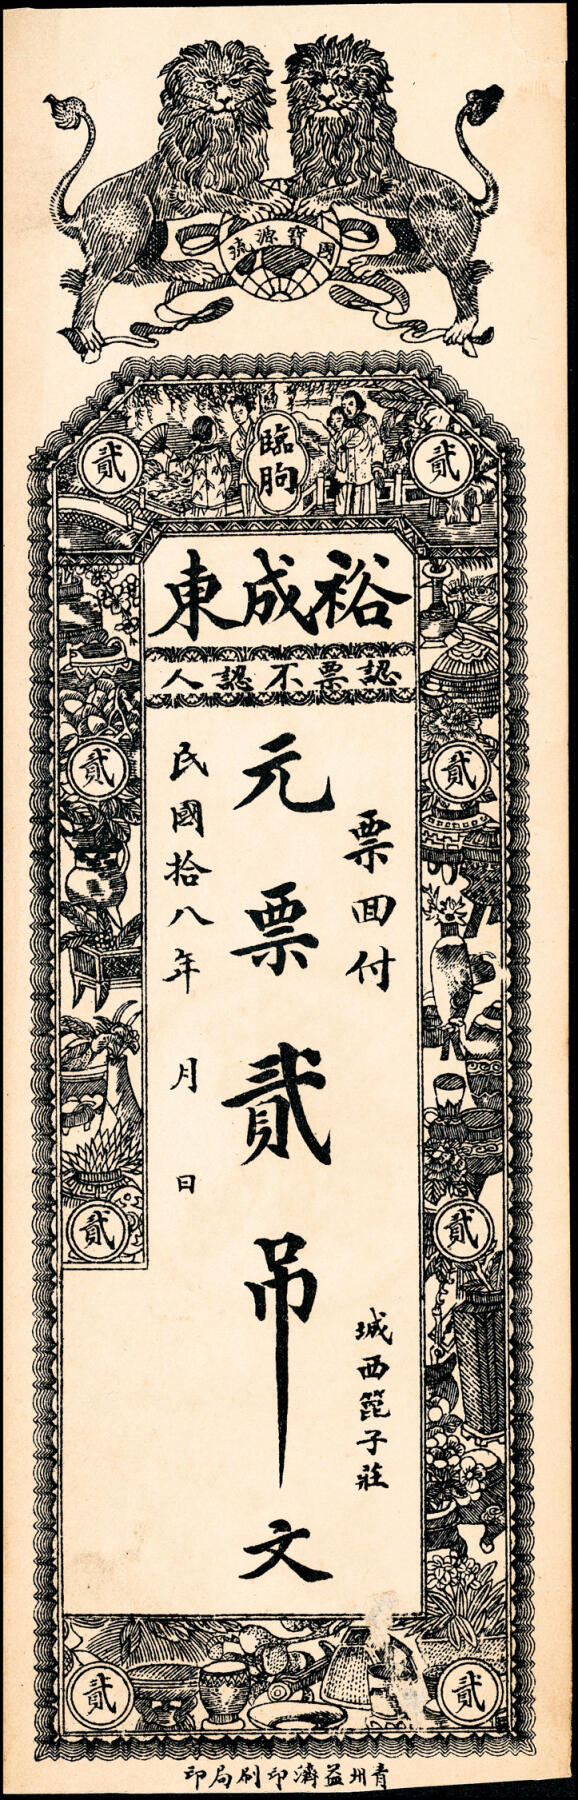 國寶源流
臨朐
貳
貳
裕成東
認票不認人
票回付
元票貳吊文
民國拾八年 月 日
城西箆子莊
貳
貳
貳
貳
貳
貳
青州益濟印刷局印